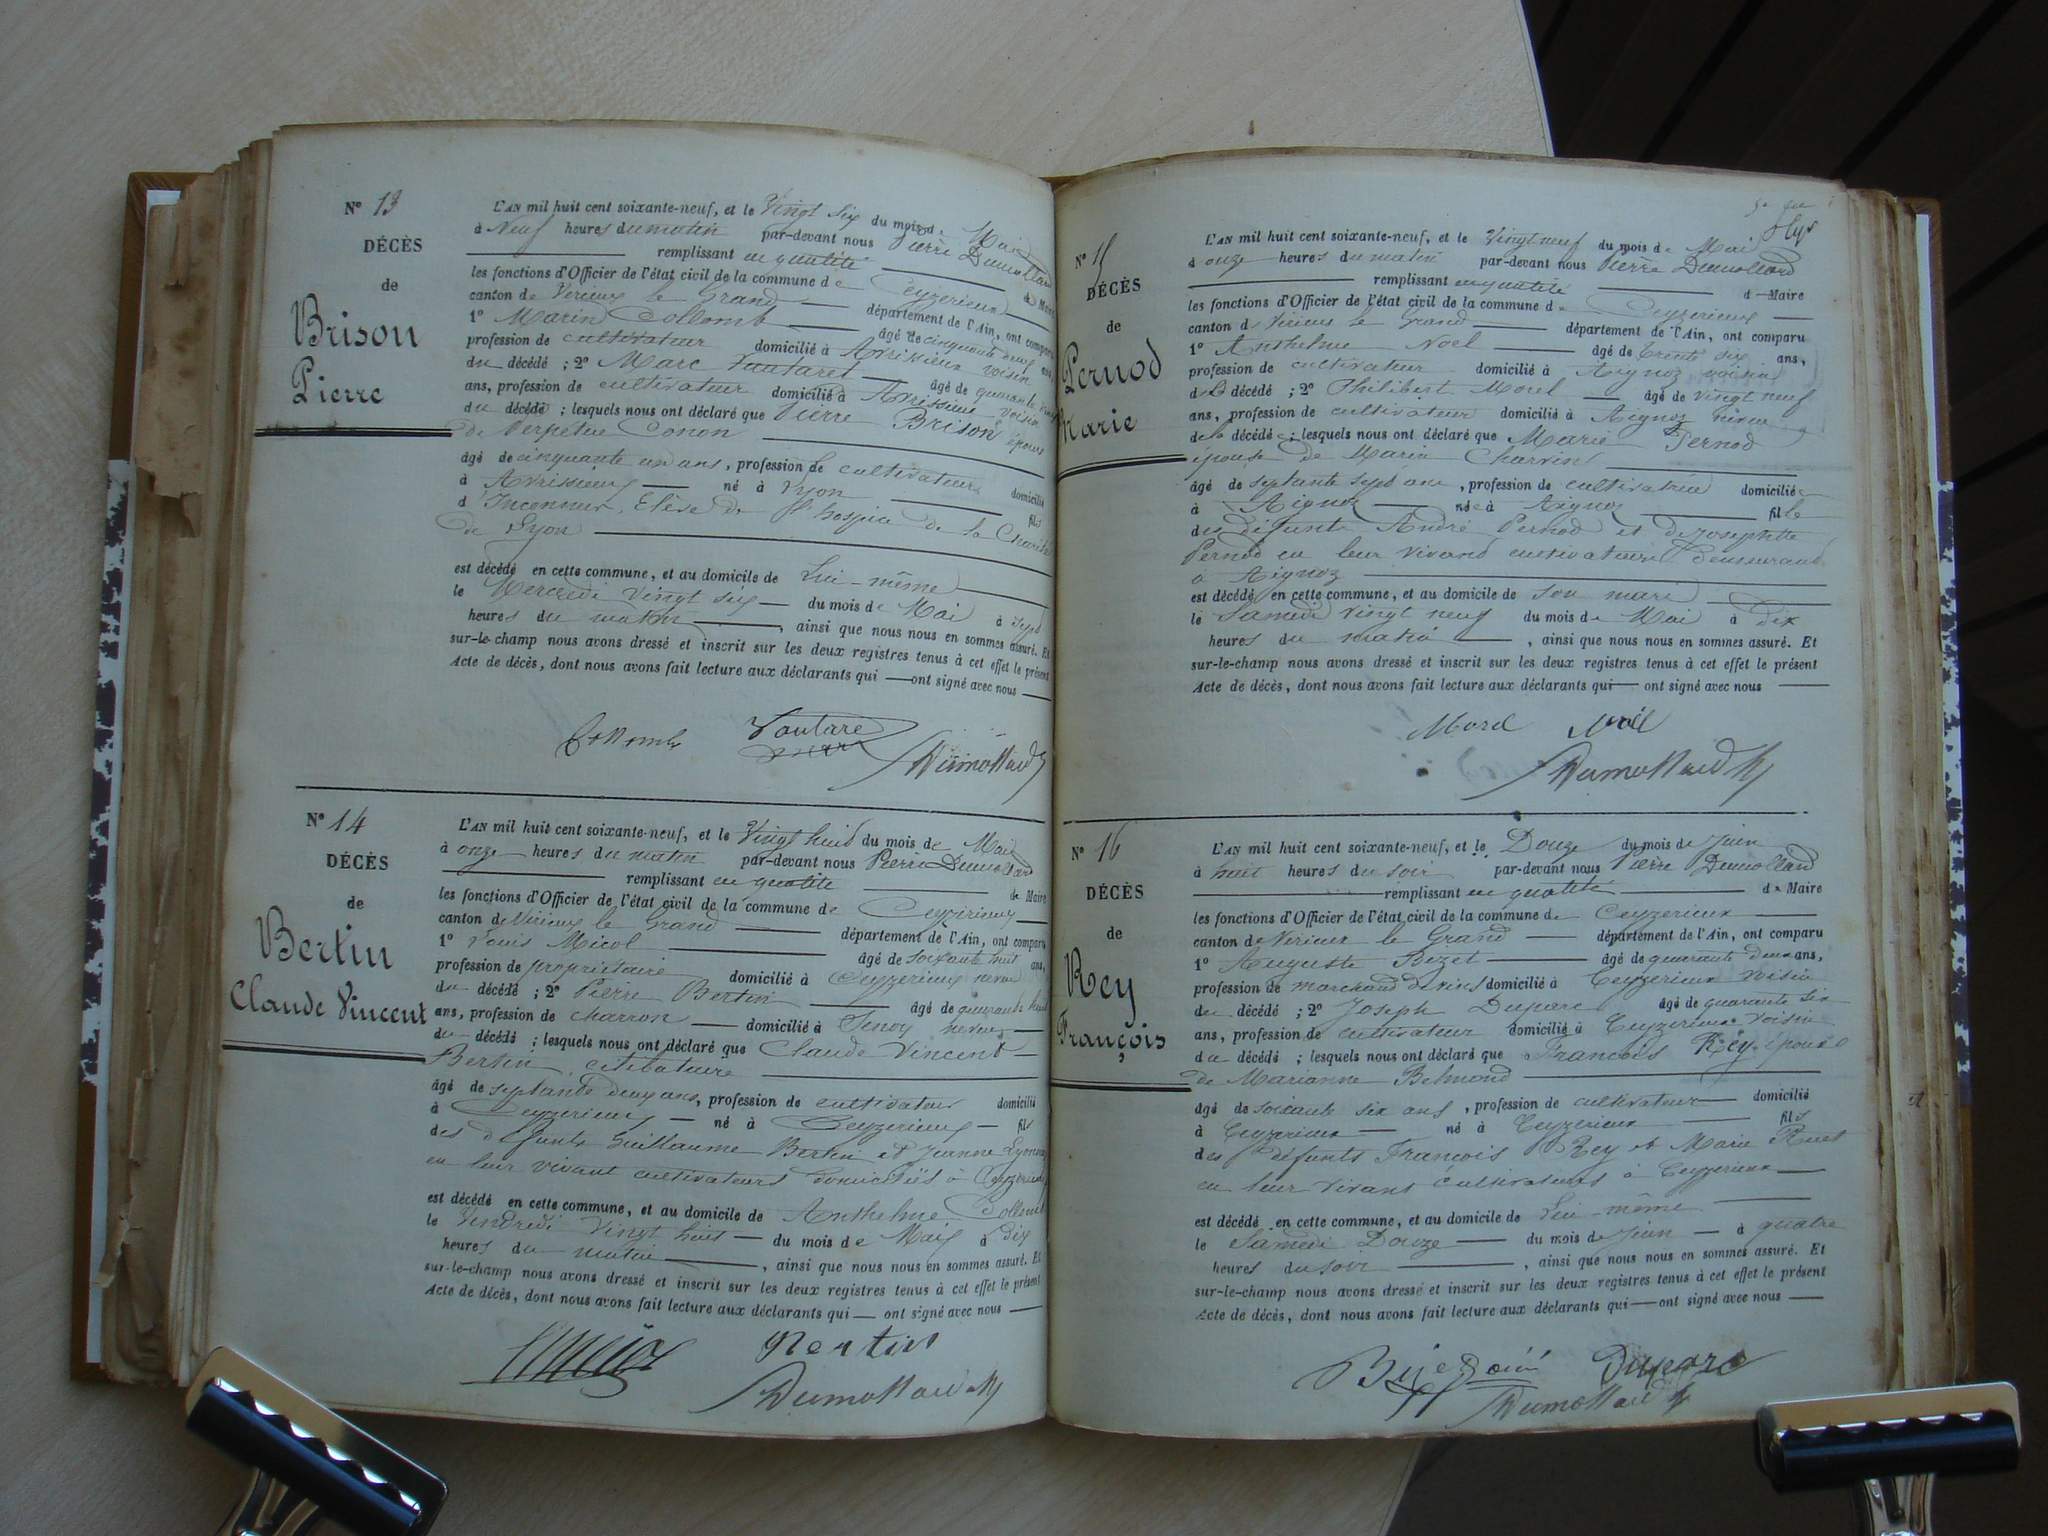 Nº 13
DÉCÈS
de
Brison
Pierre
L'AN mil huit cent soixante-neuf, et le Vingt six du mois de Mai
à Neuf heures du matin par-devant nous Pierre Dumollard
remplissant en qualité de Maire
les fonctions d'Officier de l'état civil de la commune de Ceyzerieux
canton de Virieux le Grand département de l'Ain, ont comparu
1º Marin Collomb âgé de cinquante neuf ans,
profession de cultivateur domicilié à Avrissieux voisin
du décédé ; 2º Marc Vautaret âgé de quarante
ans, profession de cultivateur domicilié à Avrissieux voisin
du décédé ; lesquels nous ont déclaré que Pierre Brison époux
de Perpetue Conon
âgé de cinquante un ans, profession de cultivateur domicilié
à Avrissieux né à Lyon fils
d'Inconnus, Elève de l'hospice de la Charité
de Lyon
est décédé en cette commune, et au domicile de Lui-même
le Mercredi vingt six du mois de Mai à sept
heures du matin, ainsi que nous nous en sommes assuré. Et
sur-le-champ nous avons dressé et inscrit sur les deux registres tenus à cet effet le présent
Acte de décès, dont nous avons fait lecture aux déclarants qui ont signé avec nous
Collomb Vautaret
Dumollard
Nº 14
DÉCÈS
de
Bertin
Claude Vincent
L'AN mil huit cent soixante-neuf, et le Vingt huit du mois de Mai
à onze heures du matin par-devant nous Pierre Dumollard
remplissant en qualité de Maire
les fonctions d'Officier de l'état civil de la commune de Ceyzerieux
canton de Virieux le Grand département de l'Ain, ont comparu
1º Louis Micol âgé de soixante huit ans,
profession de propriétaire domicilié à Ceyzerieux neveu
du décédé ; 2º Pierre Bertin âgé de quarante huit
ans, profession de charron domicilié à Senoy neveu
du décédé ; lesquels nous ont déclaré que Claude Vincent
Bertin, célibataire
âgé de septante deux ans, profession de cultivateur domicilié
à Ceyzerieux né à Ceyzerieux fils
des défunts Guillaume Bertin et Jeanne
en leur vivant cultivateurs domiciliés à Ceyzerieux
est décédé en cette commune, et au domicile de Anthelme Collomb
le Vendredi Vingt huit du mois de Mai à dix
heures du matin, ainsi que nous nous en sommes assuré. Et
sur-le-champ nous avons dressé et inscrit sur les deux registres tenus à cet effet le présent
Acte de décès, dont nous avons fait lecture aux déclarants qui ont signé avec nous
Bertin
Dumollard
Nº 15
DÉCÈS
de
Pernod
Marie
L'AN mil huit cent soixante-neuf, et le Vingt neuf du mois de Mai
à onze heures du matin par-devant nous Pierre Dumollard
remplissant en qualité de Maire
les fonctions d'Officier de l'état civil de la commune de Ceyzerieux
canton de Virieux le Grand département de l'Ain, ont comparu
1º Anthelme Noel âgé de trente six ans,
profession de cultivateur domicilié à Aignoz voisin
de la décédé ; 2º Philibert Morel âgé de vingt neuf
ans, profession de cultivateur domicilié à Aignoz neveu
de la décédée ; lesquels nous ont déclaré que Marie Pernod
épouse de Marin Charvin
âgé de septante sept ans, profession de cultivatrice domiciliée
à Aignoz née à Aignoz fille
des défunts André Pernod et de Josephtte
Pernod en leur vivant cultivateurs demeurant
à Aignoz
est décédé en cette commune, et au domicile de son mari
le Samedi vingt neuf du mois de Mai à dix
heures du matin, ainsi que nous nous en sommes assuré. Et
sur-le-champ nous avons dressé et inscrit sur les deux registres tenus à cet effet le présent
Acte de décès, dont nous avons fait lecture aux déclarants qui ont signé avec nous
Morel Noël
Dumollard
Nº 16
DÉCÈS
de
Rey
François
L'AN mil huit cent soixante-neuf, et le Douze du mois de Juin
à huit heures du soir par-devant nous Pierre Dumollard
remplissant en qualité de Maire
les fonctions d'Officier de l'état civil de la commune de Ceyzerieux
canton de Virieux le Grand département de l'Ain, ont comparu
1º Auguste Bizet âgé de quarante deux ans,
profession de marchand de vins domicilié à Ceyzerieux voisin
du décédé ; 2º Joseph Duparc âgé de quarante six
ans, profession de cultivateur domicilié à Ceyzerieux voisin
du décédé ; lesquels nous ont déclaré que François Rey époux
de Marianne Belmond
âgé de soixante six ans, profession de cultivateur domicilié
à Ceyzerieux né à Ceyzerieux fils
des défunts François Rey et Marie
en leur vivant cultivateurs à Ceyzerieux
est décédé en cette commune, et au domicile de Lui-même
le Samedi Douze du mois de Juin à quatre
heures du soir, ainsi que nous nous en sommes assuré. Et
sur-le-champ nous avons dressé et inscrit sur les deux registres tenus à cet effet le présent
Acte de décès, dont nous avons fait lecture aux déclarants qui ont signé avec nous
Duparc
Dumollard